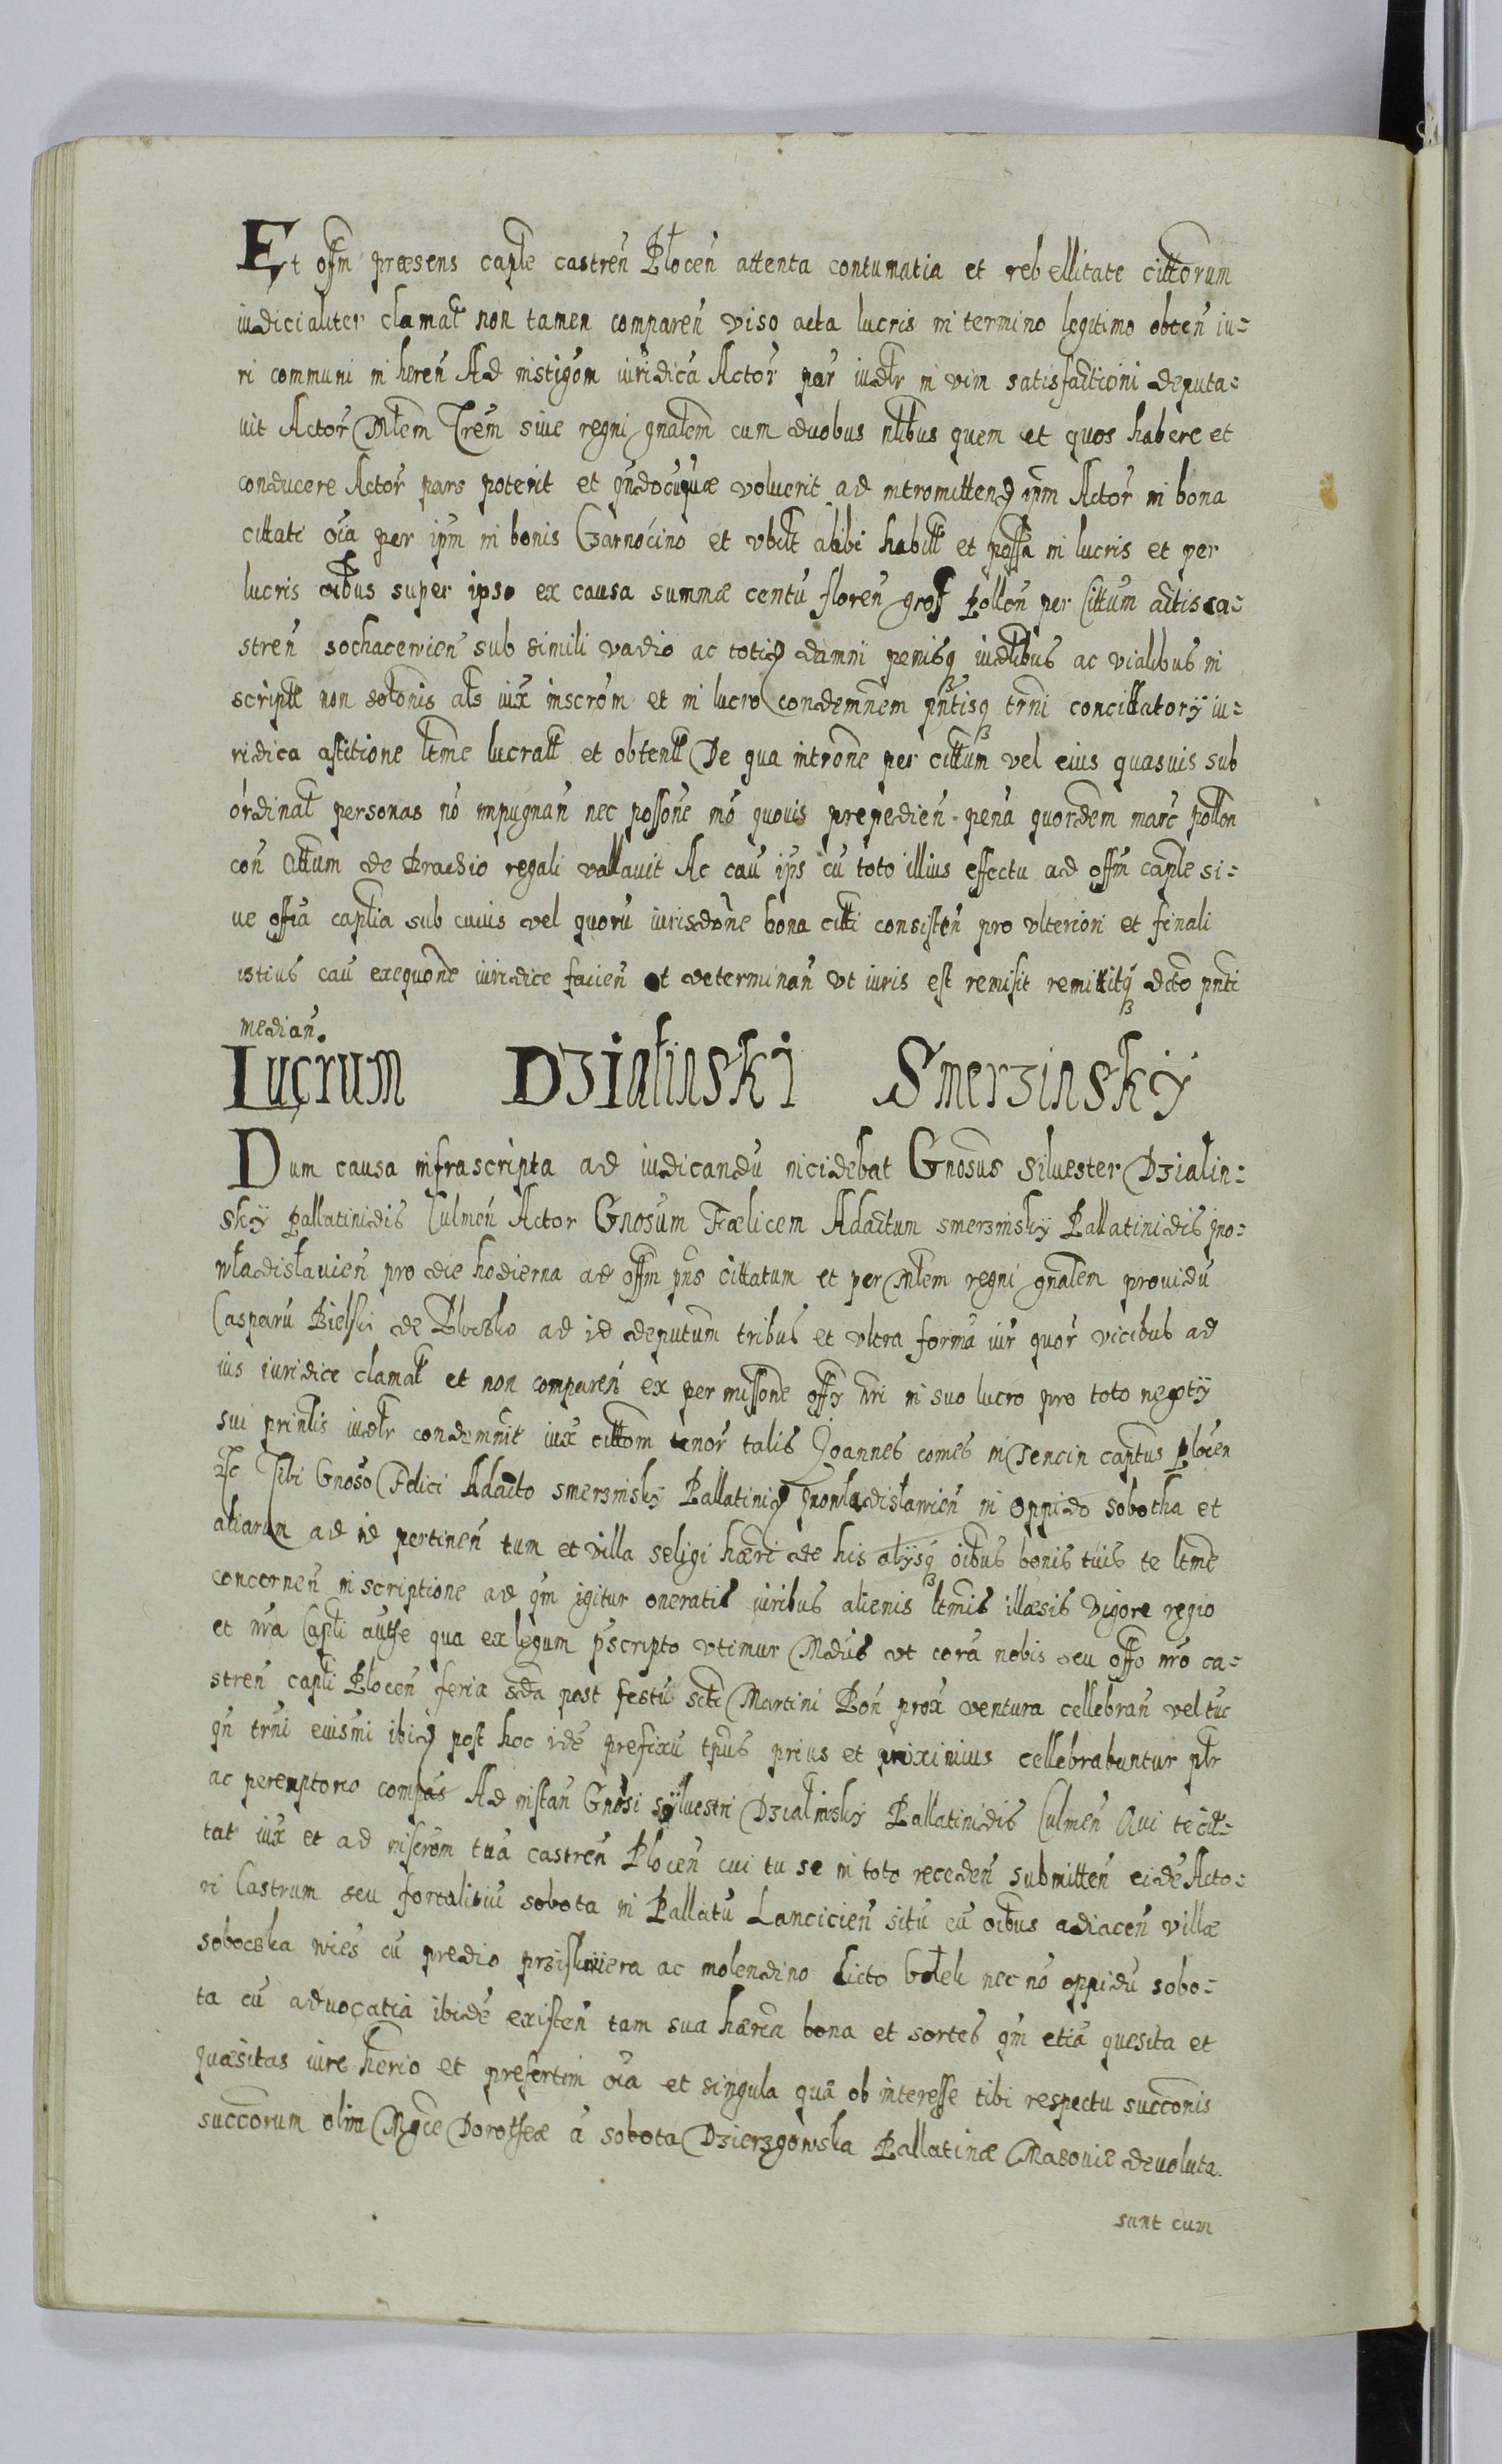 Et offm præsens caple castren̄ Płocen̄ attenta contumatia et rebellitate cittorum
iudicialiter clamat non tamen comparen̄ viso acta lucris in termino legitimo obten̄ iu=
ri communi in heren̄ Ad instigōm iuridicā Actor̄ par iudlr in vim satisfactioni deputa=
uit Actor̄ Mlem Trem siue regni gnalem cum duobus nlibus quem et quos habere et
conducere Actor̄ pars poterit et qn̄docuquæ voluerit ad intromittend ipm Actor̄ in bona
cittati oīa per ipm in bonis Gzarnocino et vbilt alibi habilt et possa in lucris et per
lucris oibus super ipso ex causa summæ centū floren̄ gros Pollon̄ per Cittum actis ca=
stren̄ sochacewien̄ sub simili vadio ac totid damni penisq iudlibus ac vialibus in
scriptt non solonis als iux inscrōm et in lucro condemnem pn̄tisq trni concittatorÿ iu=
ridica astitione ltme lucratt et obtentt De qua introne per cittum vel eius quasuis sub
ordinat personas nō impugnan̄ nec possone mō quouis prepedien̄ pena quordem marc pollon
con Cittum de Brachio regali vallauit Ac cau ips cū toto illius effectu ad offm caple si=
ue offia captia sub cuius vel quorū iurisdōne bona citti consisten̄ pro vlteriori et finali
istius cau exequone iuridice facien̄ et determinan̄ vt iuris est remisit remittitq dcto pnti
median̄.
Lucrum Dzialinski Smerzinskÿ
Dum causa infrascripta ad iudicandū incidebat Gnosus Siluester Dzialin=
skÿ Pallatinidis Culmen̄ Actor Gnosum Fælicem Adactum smerzinskÿ Pallatinidis jno=
wladislauien̄ pro die hodierna ad offm pns cittatum et per Mlem regni gnalem prouidū
Casparū Bielski de Płoczko ad id deputum tribus et vltra formā iur quor̄ vicibus ad
ius iuridice clamatt et non comparen̄ ex permissone offÿ nri in suo lucro pro toto negotÿ
sui prinlis iudlr condemnit iux cittom tenor̄ talis Joannes comes in Tencin captus Plocen
Tibi Gnoso Felici Adacto smerzinskÿ Pallatinid jnowladislawien̄ in oppido sobotha et
aliarum ad id pertinen̄ tum et villa seligi hæri de his alÿsq oibus bonis tuis te ltme
concernen̄ inscriptione ad qm igitur oneratis iuribus alienis ltmis illæsis Vigore regio
et nra Capli autse qua ex legum pscripto vtimur Mdus vt corā nobis seu offo nro ca=
stren̄ capli Plocen̄ feria sda post festū scti Martini Pon̄ prox ventura cellebran̄ vel tuc
qn̄ trni euismi ibid post hoc idē prefixū tpus prius et proximius cellebrabuntur plr
ac peremptorio compas Ad instan̄ Gnosi sÿluestri Dzialinskÿ Pallatinidis Culmen̄ Qui te cit=
tat iux et ad inscrōm tuā castren̄ Plocen̄ cui tu se in toto receden̄ submitten̄ eidē Acto=
ri Castrum seu fortalitiū sobota in Pallatū Lancicien̄ sitū cū oibus adiacen̄ villæ
sobocska wies cū predio ac molendino dicto necnō oppidū sobo=
ta cū aduocatia ibidē existen̄ tam sua hæria bona et sortes qm etiā quesita et
quæsitas iure herio et presertim oīa et singula quā ob interesse tibi respectu succonis
succorum olim Mgce Dorotheæ a sobota Dzierzgowska Pallatinæ Masouiæ deuoluta.
sunt cum